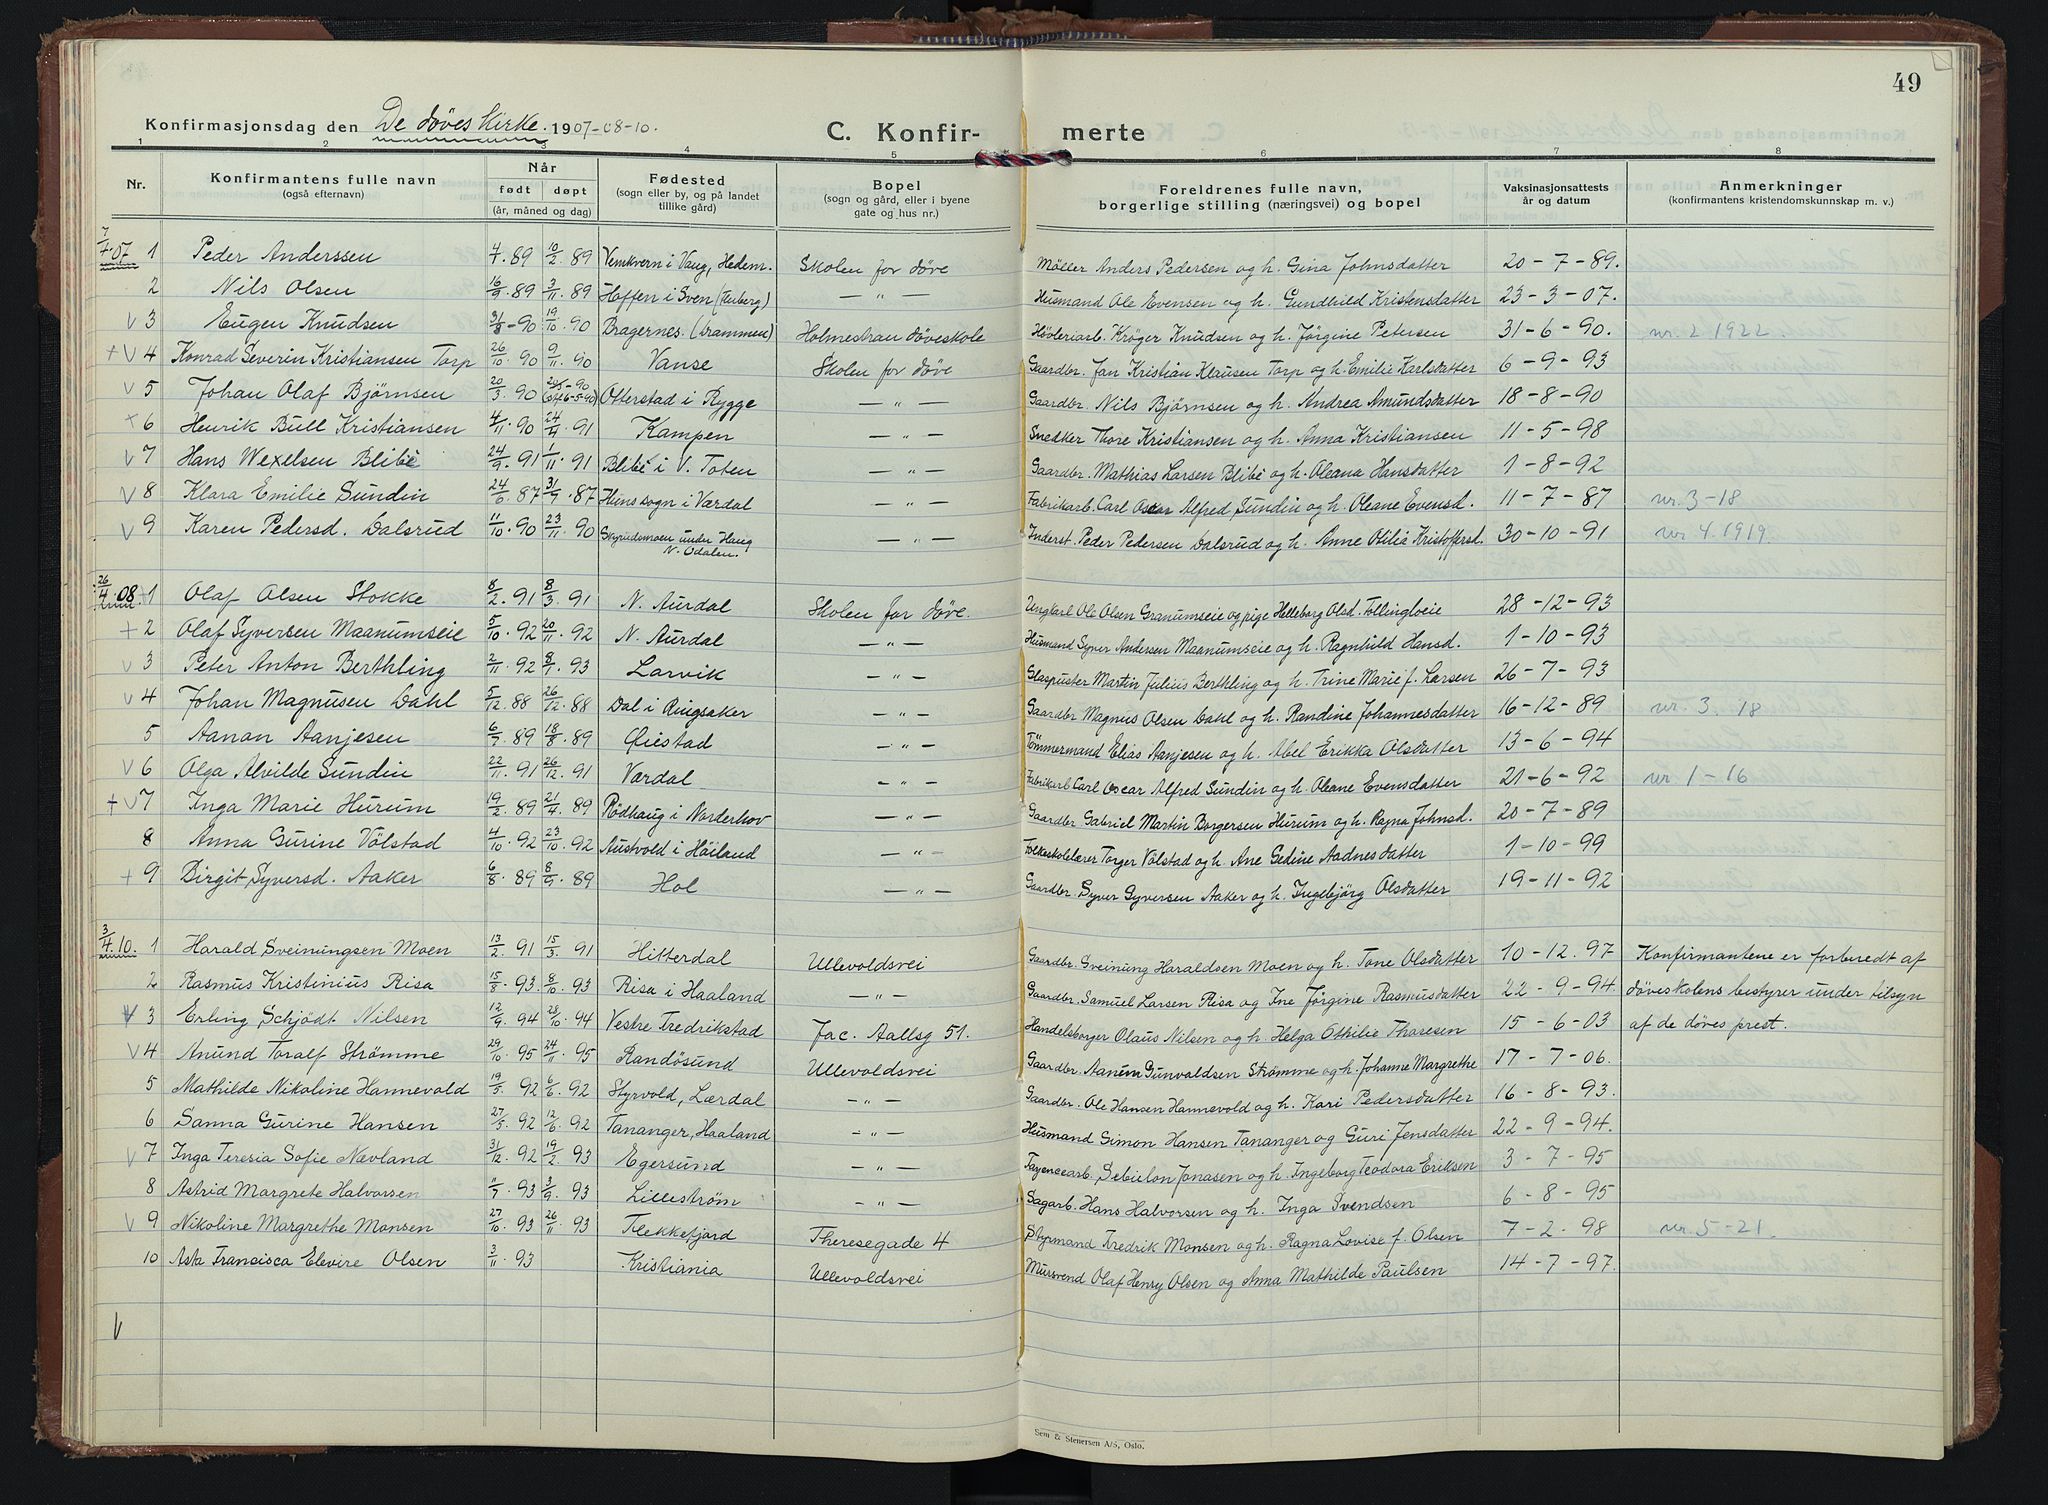 49
Konfirmasjonsdag den De døves kirke. 1907-08-10.
C. Konfir- merte
1 2 3 4 5 6 7 8
Nr. Konfirmantens fulle navn (også efternavn) Når født døpt (år, måned og dag) Fødested (sogn eller by, og på landet tillike gård) Bopel (sogn og gård, eller i byene gate og hus nr.) Foreldrenes fulle navn, borgerlige stilling (næringsvei) og bopel Vaksinasjonsattests år og datum Anmerkninger (konfirmantens kristendomskunnskap m. v.)
7/4.07 1 Peder Anderssen 4/1.89 10/2.89 Vemkvern i Vang, Hedem. Skolen for døve Møller Anders Pedersen og h. Gina Johnsdatter 20-7-89.
2 Nils Olsen 16/9.89 3/11.89 Hoffen i Sven (Furberg) —"— Husmand Ole Evensen og h. Gundhild Kristensdatter 23-3-07.
V 3 Eugen Knudsen 31/8-90 19/10.90 Bragernes (Drammen) Holmestran døveskole Høvleriarb. Krøger Knudsen og h. Jörgine Petersen 31-6-90. nr. 2 1922.
+V 4 Konrad Severin Kristiansen Torp 26/10.90 9/11.90 Vanse Skolen for døve Gaardbr. Jan Kristian Klausen Torp og h. Emilie Karlsdatter 6-9-93
V 5 Johan Olaf Bjørnsen 20/3.90 Otterstad i Rygge —"— Gaardbr. Nils Bjørnsen og h. Andrea Amundsdatter 18-8-90
+ 6 Henrik Bull Kristiansen 4/11.90 24/4.91 Kampen —"— Snedker Thore Kristiansen og h. Anna Kristiansen 11-5-98
V 7 Hans Wexelsen Blibe 24/9.91 1/11.91 Blibe i V. Toten —"— Gaardbr. Mathias Larsen Blibe og h. Oleana Hansdatter 1-8-92
V 8 Klara Emilie Sundin 24/6.87 31/9.87 Hunssogn i Vardal —"— Fabrikarb. Carl Oscar Alfred Sundin og h. Oleane Evensd. 11-7-87 nr. 3-18
V 9 Karen Pedersd. Dalsrud 11/10.90 23/11.90 Skyrudsmoen under Haug N. Odalen. —"— Inderst. Peder Pedersen Dalsrud og h. Anne Otilie Kristoffersd. 30-10-91 nr. 4. 1919.
26/4.08 + 1 Olaf Olsen Stokke 8/2.91 8/3.91 N. Aurdal Skolen for døve. Ungkarl Ole Olsen Granumseie og pige Helleborg Olsd. Tollingloeie 28-12-93
+ 2 Olaf Syversen Maanumseie 5/10.92 20/11.92 N. Aurdal —"— Husmand Syver Andersen Maanumseie og h. Ragnhild Hansd. 1-10-93
V 3 Peter Anton Berthling 2/11.92 8/1.93 Larvik —"— Glaspuster Martin Julius Berthling og h. Trine Marie f. Larsen 26-7-93
V 4 Johan Magnusen Dahl 5/12.88 26/12.88 Dal i Ringsaker —"— Gaardbr Magnus Olsen Dahl og h. Randine Johannesdatter 16-12-89 nr. 3. 18
5 Aanon Aanjesen 6/7.89 18/8.89 Öiestad —"— Tømmermand Elias Aanjesen og h. Abel Erikka Olsdatter 13-6-94
V 6 Olga Alvilde Sundin 22/11.91 26/12.91 Vardal —"— Fabrikarb Carl Oscar Alfred Sundin og h. Oleane Evensdatter 21-6-92 nr 1-16
+V 7 Inga Marie Hurum 19/2.89 21/4.89 Rödhaug i Norderhov —"— Gaardbr Gabriel Martin Borgersen Hurum og h. Ragna Johnsd. 20-7-89
8 Anna Gurine Völstad 4/10.92 23/10.92 Austvold i Höiland —"— Folkeskolelærer Torger Völstad og h. Ane Gedine Aadnesdatter 1-10-99
+ 9 Birgit Syversd. Aaker 6/8.89 8/9.89 Hol —"— Gaardbr. Syver Syversen Aaker og h. Ingebjörg Olsdatter 19-11-92
3/4.10. 1 Harald Sveinungsen Moen 13/2.91 15/3.91 Hitterdal Ullevoldsvei Gaardbr. Sveinung Haraldsen Moen og h. Tone Olsdatter 10-12.97 Konfirmantene er forberedt af
2 Rasmus Kristinius Risa 15/8.93. 8/10.93 Risa i Haaland —"— Gaardbr. Samuel Larsen Risa og Ine Jörgine Rasmusdatter 22-9-94. døveskolens bestyrer under tilsyn
V 3 Erling Schjödt Nilsen 12/9.94 28/10.94 Vestre Fredrikstad Jac. Aallsg 51. Handelsborger Olaus Nilsen og h. Helga Othilie Thoresen 15-6-03 af de døves prest.
V 4 Anund Toralf Strömme 29/10.95 24/11.95 Randösund Ullevoldsvei Gaardbr. Aanem Gunvaldsen Strömme og h. Johanne Margrethe 17-7-06.
5 Mathilde Nikoline Hannevold 19/5.92 6/6.92 Styrvold, Lærdal —"— Gaardbr. Ole Hansen Hannevold og h. Kari Pedersdatter 16-8-93.
6 Sanna Gurine Hansen 27/5.92 12/6.92 Tananger, Haaland —"— Husmand Simon Hansen Tananger og Guri Jensdatter 22-9-94.
V 7 Inga Teresia Sofie Nævland 31/12.92 19/2.93 Egersund —"— Fayencearb. Sebulon Jonasen og h. Ingeborg Teodora Eriksen 3-7-95
8 Astrid Margrete Halvorsen 11/7.93 3/9.93 Lilleström —"— Sagarb. Hans Halvorsen og h. Inga Svendsen 6-8-95
V 9 Nikoline Margrethe Monsen 27/10.93 26/11.93 Flekkefjord Theresegade 4 Styrmand Fredrik Monsen og h. Ragna Lovise f. Olsen 7-2.98 nr. 5-21.
10 Asta Francisca Elevire Olsen 3/11.93 Kristiania Ullevoldsvei Mursvend Olaf Henry Olsen og Anna Mathilde Paulsen 14-7-97.
V
Sem & Stenersen A/S, Oslo.